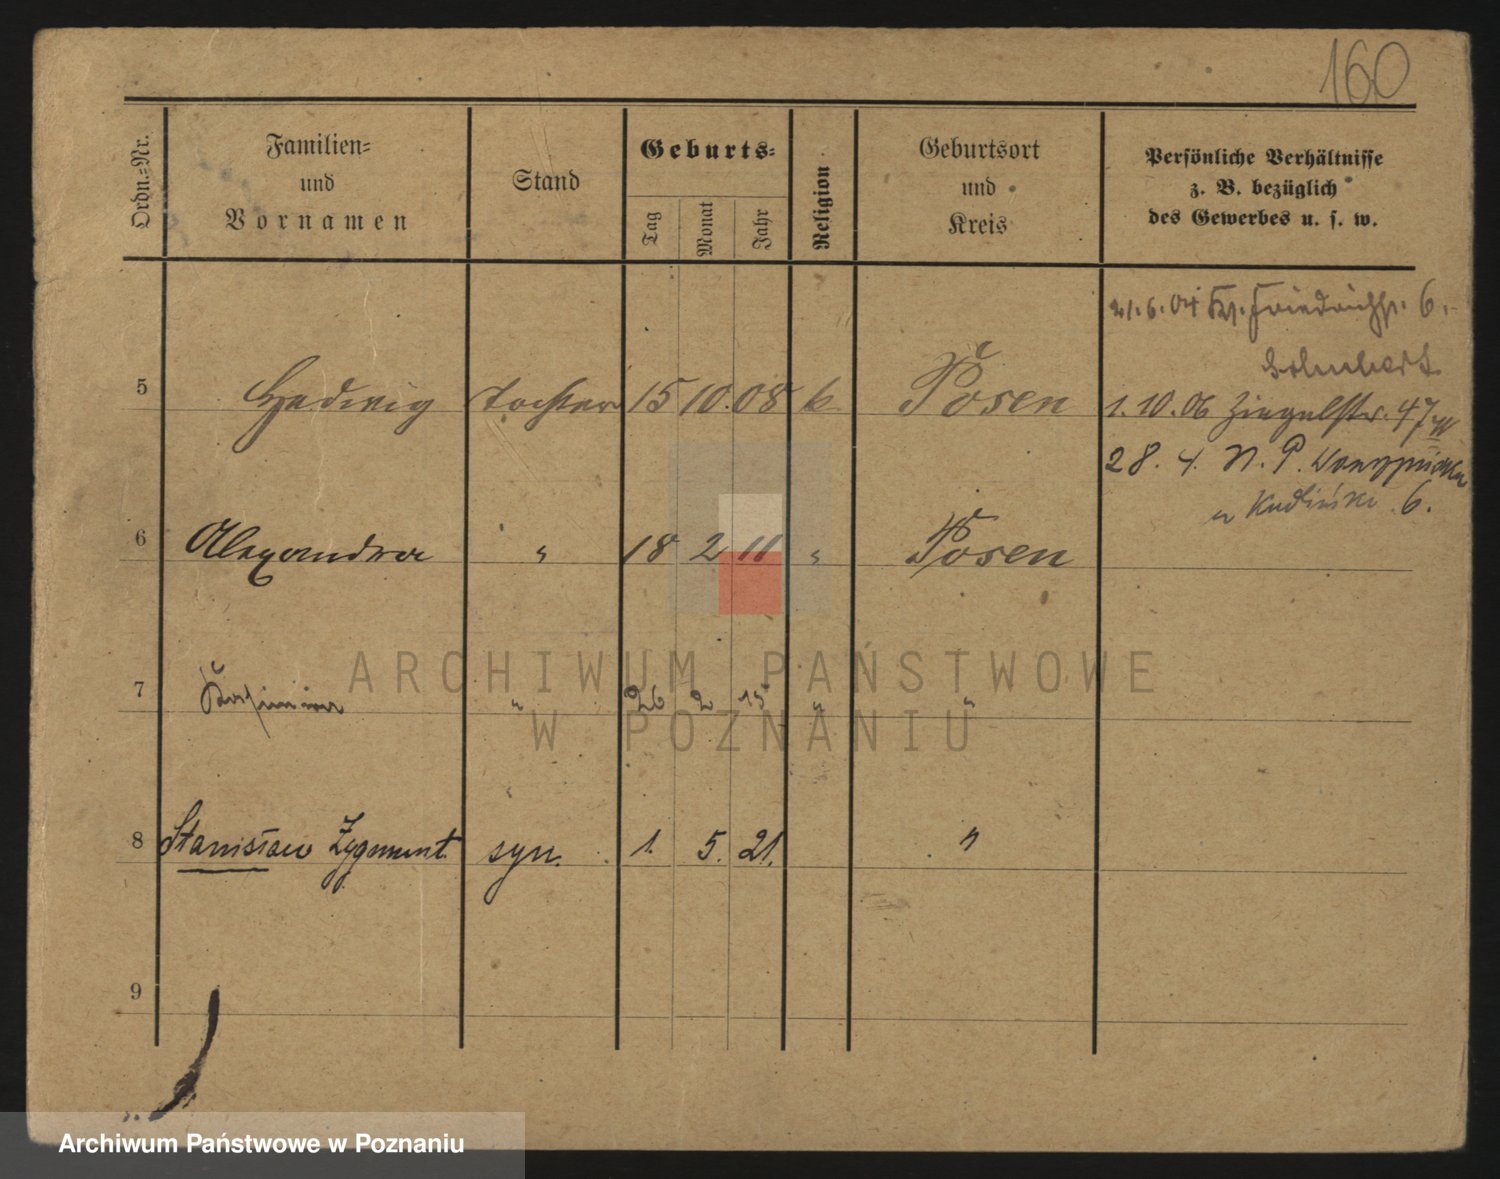 160
Ordn.-Nr.
Familien-
und
Vornamen
Stand
Geburts-
Tag
Monat
Jahr
Religion
Geburtsort
und
Kreis
Persönliche Verhältnisse
z. B. bezüglich
des Gewerbes u. s. w.
21.6.04 Friedrichstr. 6.
5 Hedwig Tochter 15 10. 08 k. Posen
1.10.06 Ziegelstr. 47
28. 4. N. P.
6.
6 Alexandra " 18 2 11 " Posen
7 Kasimira " 26 2 15 " "
8 Stanisław Zygmunt syn. 1. 5. 21. "
9
ARCHIWUM PAŃSTWOWE
W POZNANIU
Archiwum Państwowe w Poznaniu